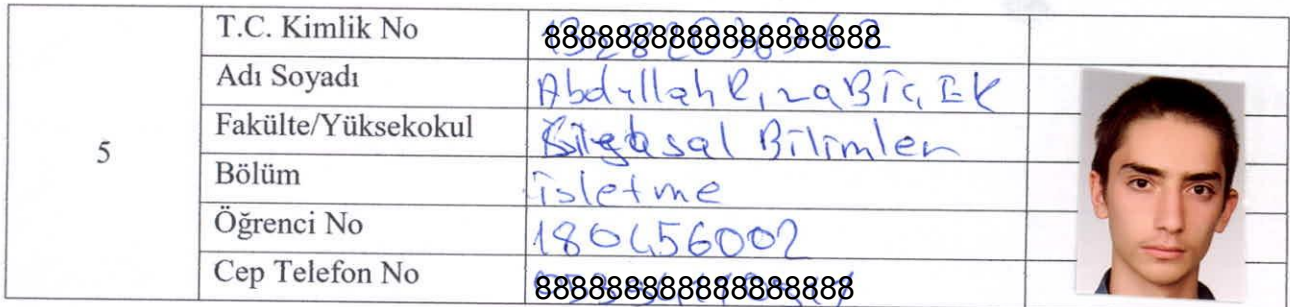 5
T.C. Kimlik No 8888888888888888888
Adı Soyadı Abdullah Rıza BİÇEK
Fakülte/Yüksekokul Siyasal Bilimler
Bölüm İsletme
Öğrenci No
Cep Telefon No 888888888888888888